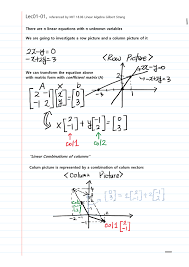 Lec01-01, referenced by MIT 18.06 Linear Algebra Gilbert Strang
There are n linear equations with n unknown variables
We are going to investigate a row picture and a column picture of it
2x-y=0
-x+2y=3
<Row Picture>
2x-y=0
-x+2y=3
We can transform the equation above
with matrix form with coefficient matrix (A)
A x b
[2 -1; -1 2] [x; y] = [0; 3]
x[2; -1] + y[-1; 2] = [0; 3]
col1 col2
"Linear Combinations of columns"
Column picture is represented by a combination of column vectors
<Column Picture>
col1 [2; -1]